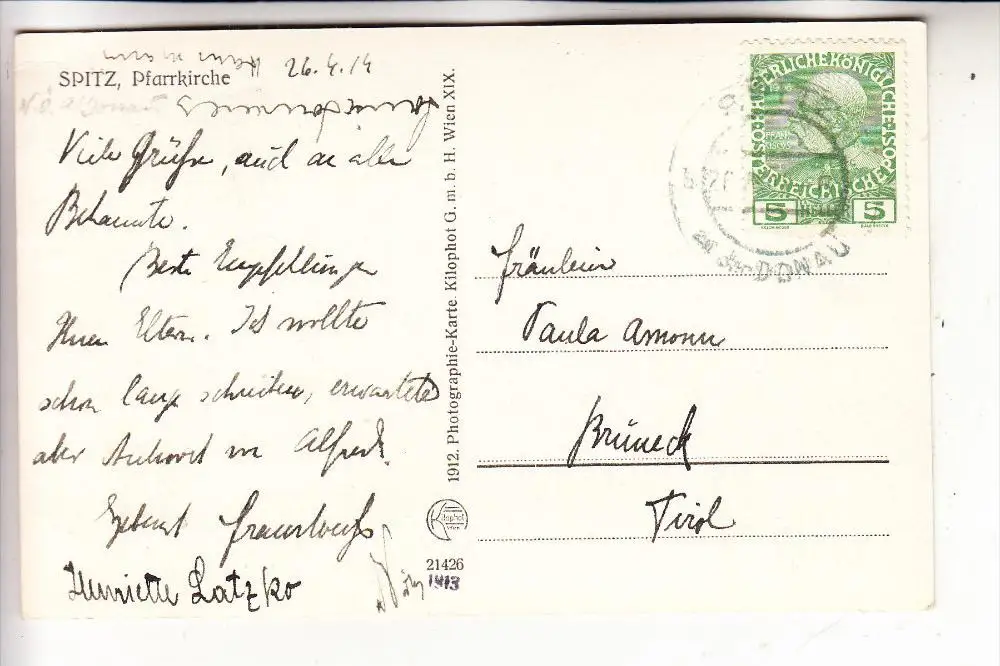 SPITZ, Pfarrkirche
26.4.14
Viele Grüße, auch an alle
Bekannte.
Beste Empfehlungen
Ihren Eltern. Ich wollte
schon lange schreiben, erwartete
aber Antwort von Alfred.
Henriette Latzko
1912. Photographie-Karte. Kilophot G. m. b. H. Wien XIX.
Kilophot
Wien
21426
1913
KAISERLICHE KÖNIGLICHE
ÖSTERREICHISCHE POST
5 HELLER 5
an der DONAU
Fräulein
Paula Amonn
Brüneck
Tirol